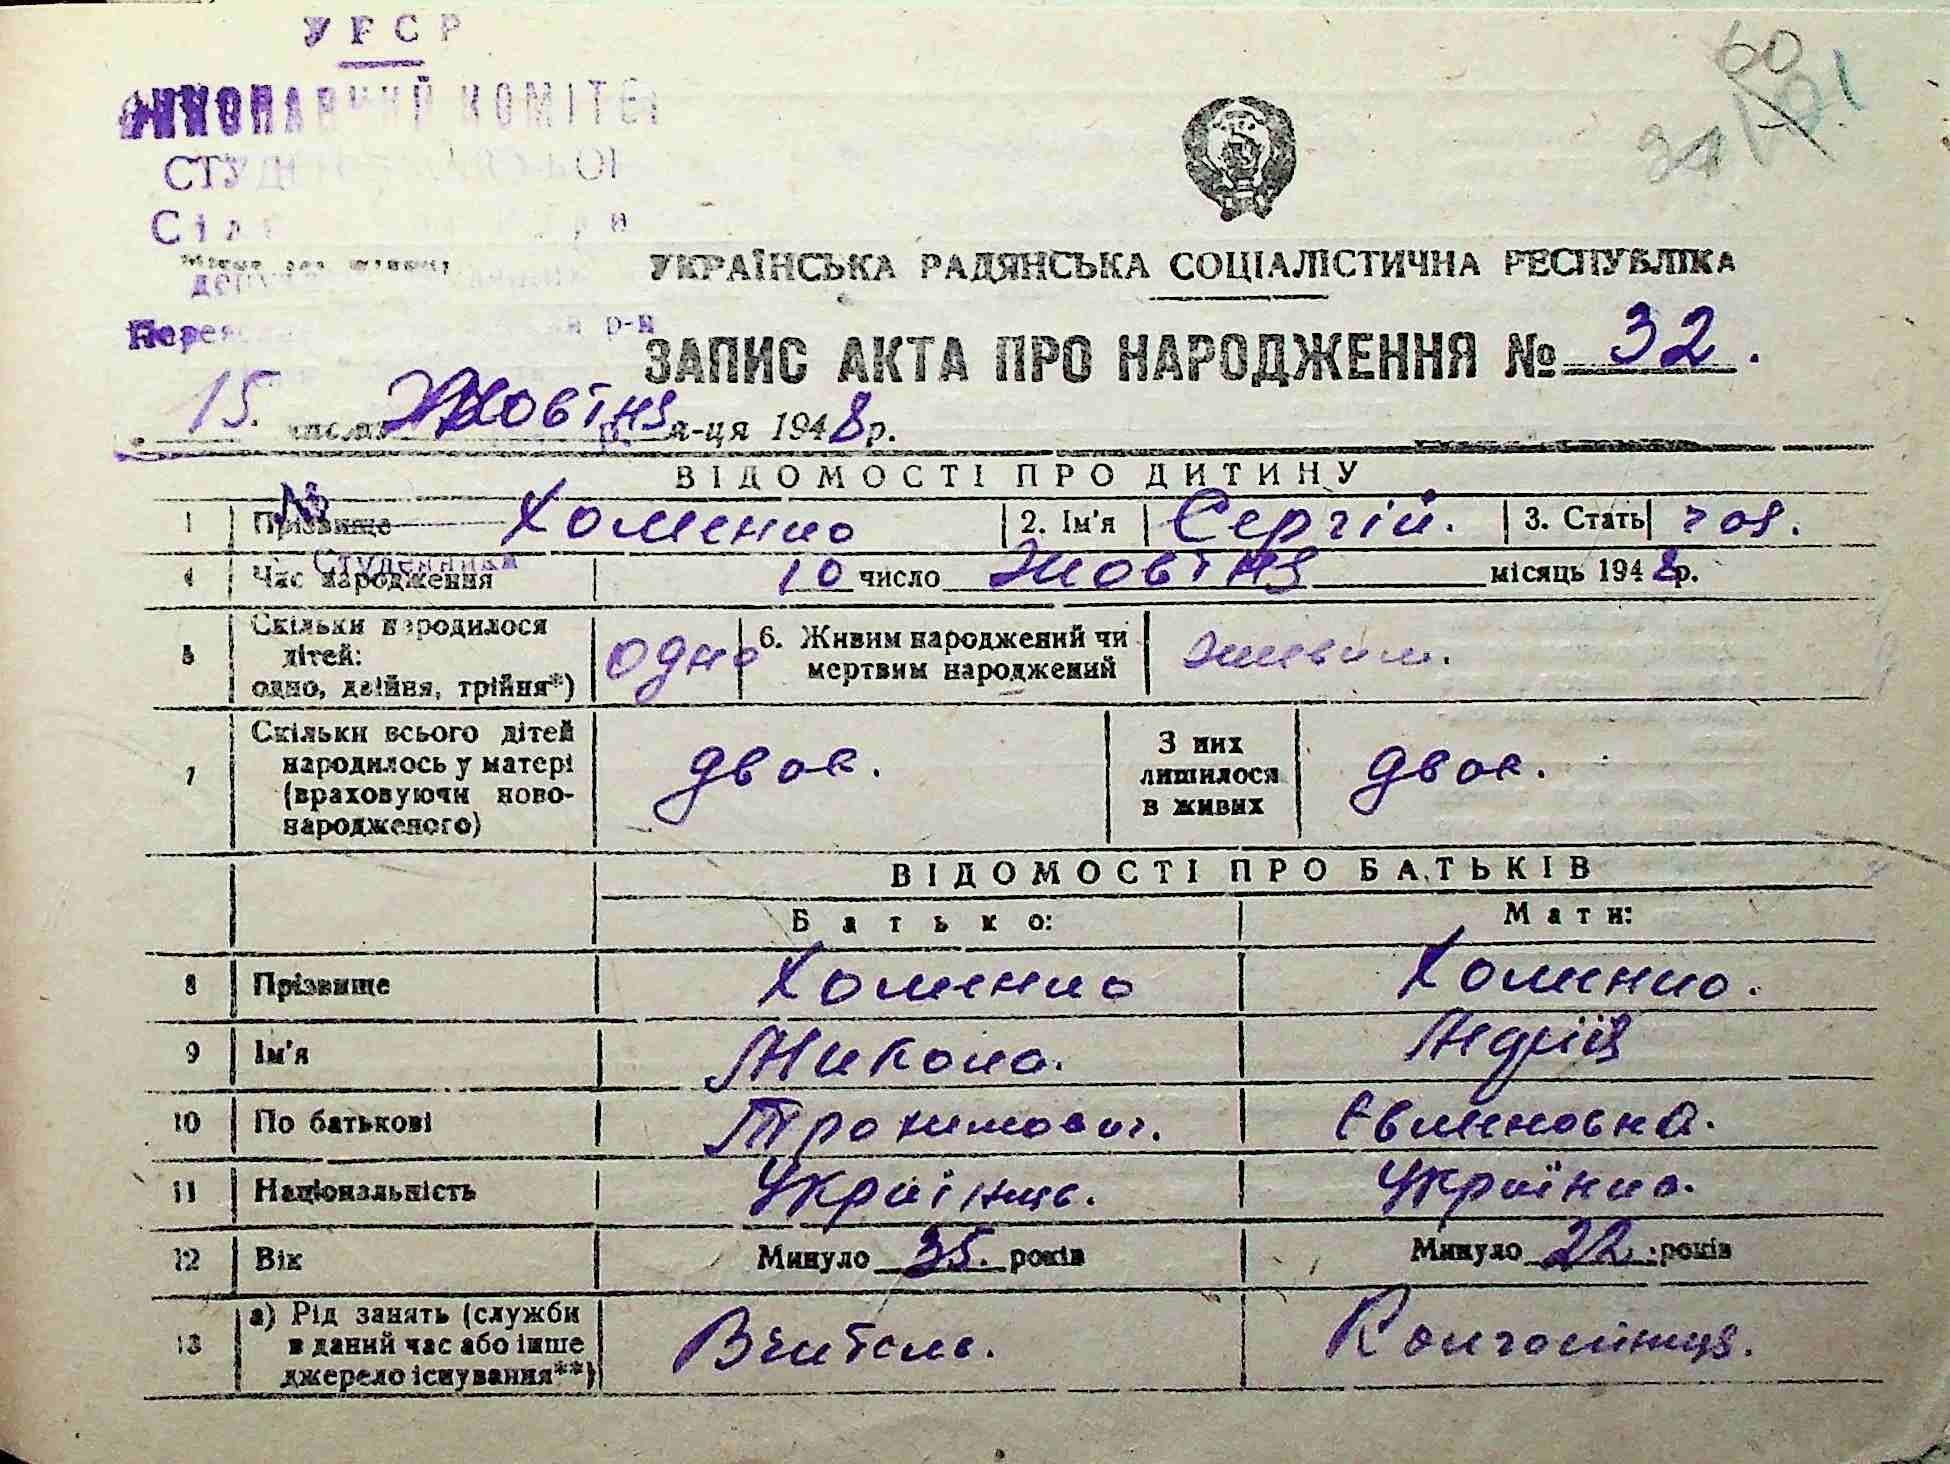 УРСР
ВИКОНАВЧИЙ КОМІТЕТ
р-н
60
УКРАЇНСЬКА РАДЯНСЬКА СОЦІАЛІСТИЧНА РЕСПУБЛІКА
ЗАПИС АКТА ПРО НАРОДЖЕННЯ № 32.
15. числа Жовтня м-ця 1948 р.
ВІДОМОСТІ ПРО ДИТИНУ
№
1 Прізвище Хоменко 2. Ім'я Сергій. 3. Стать чол.
Студеники
4 Час народження 10 число Жовтня місяць 1948 р.
5 Скільки народилося дітей: одно, двійня, трійня*) одно 6. Живим народжений чи мертвим народжений живим.
7 Скільки всього дітей народилось у матері (враховуючи новонародженого) двоє. З них лишилося в живих двоє.
ВІДОМОСТІ ПРО БАТЬКІВ
Батько: Мати:
8 Прізвище Хоменко Хоменко.
9 Ім'я Микола. Марія
10 По батькові Трохимович. Євменовна.
11 Національність Українець. Українка.
12 Вік Минуло 35. років Минуло 22 років
13 а) Рід занять (служби в даний час або інше джерело існування**) Вчитель. Колгоспниця.